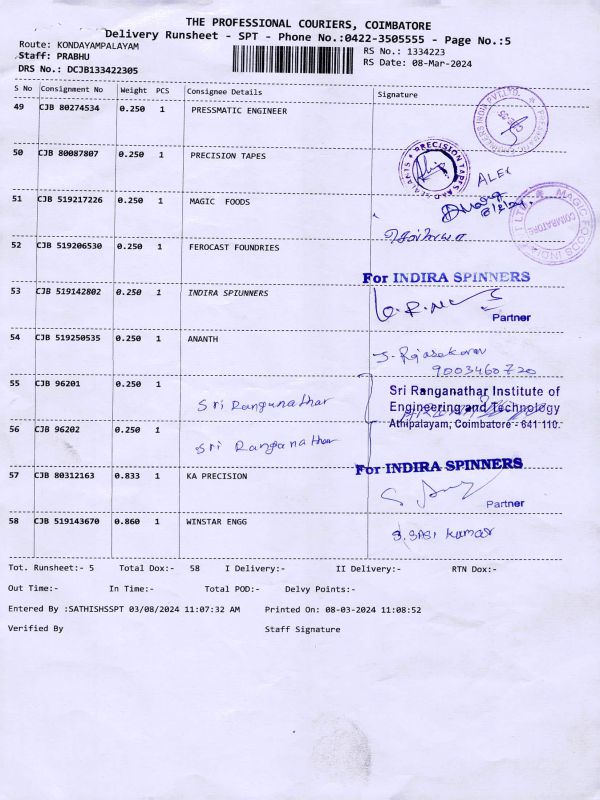 THE PROFESSIONAL COURIERS, COIMBATORE
Delivery Runsheet - SPT - Phone No.:0422-3505555 - Page No.:5
Route: KONDAYAMPALAYAM
RS No.: 1334223
Staff: PRABHU
RS Date: 08-Mar-2024
DRS No.: DCJB133422305
S No Consignment No Weight PCS Consignee Details Signature
49 CJB 80274534 0.250 1 PRESSMATIC ENGINEER
50 CJB 80087807 0.250 1 PRECISION TAPES
PRECISION TAPES AND
ALEX
51 CJB 519217226 0.250 1 MAGIC FOODS
MAGIC FOODS INDIA
COIMBATORE
52 CJB 519206530 0.250 1 FEROCAST FOUNDRIES
For INDIRA SPINNERS
53 CJB 519142802 0.250 1 INDIRA SPIUNNERS
Partner
54 CJB 519250535 0.250 1 ANANTH
S. Rajasekaran
9003460720
55 CJB 96201 0.250 1 Sri Ranganathar
Sri Ranganathar Institute of
Engineering and Technology
Athipalayam, Coimbatore - 641 110.
56 CJB 96202 0.250 1 Sri Ranganathar
For INDIRA SPINNERS
57 CJB 80312163 0.833 1 KA PRECISION
Partner
58 CJB 519143670 0.860 1 WINSTAR ENGG
S. SASI Kumar
Tot. Runsheet:- 5 Total Dox:- 58 I Delivery:- II Delivery:- RTN Dox:-
Out Time:- In Time:- Total POD:- Delvy Points:-
Entered By :SATHISHSSPT 03/08/2024 11:07:32 AM Printed On: 08-03-2024 11:08:52
Verified By Staff Signature